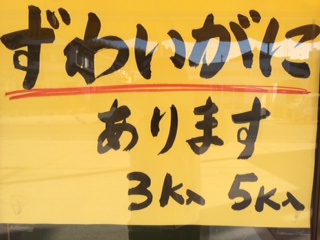 ずわいがに
あります
3K入 5K入